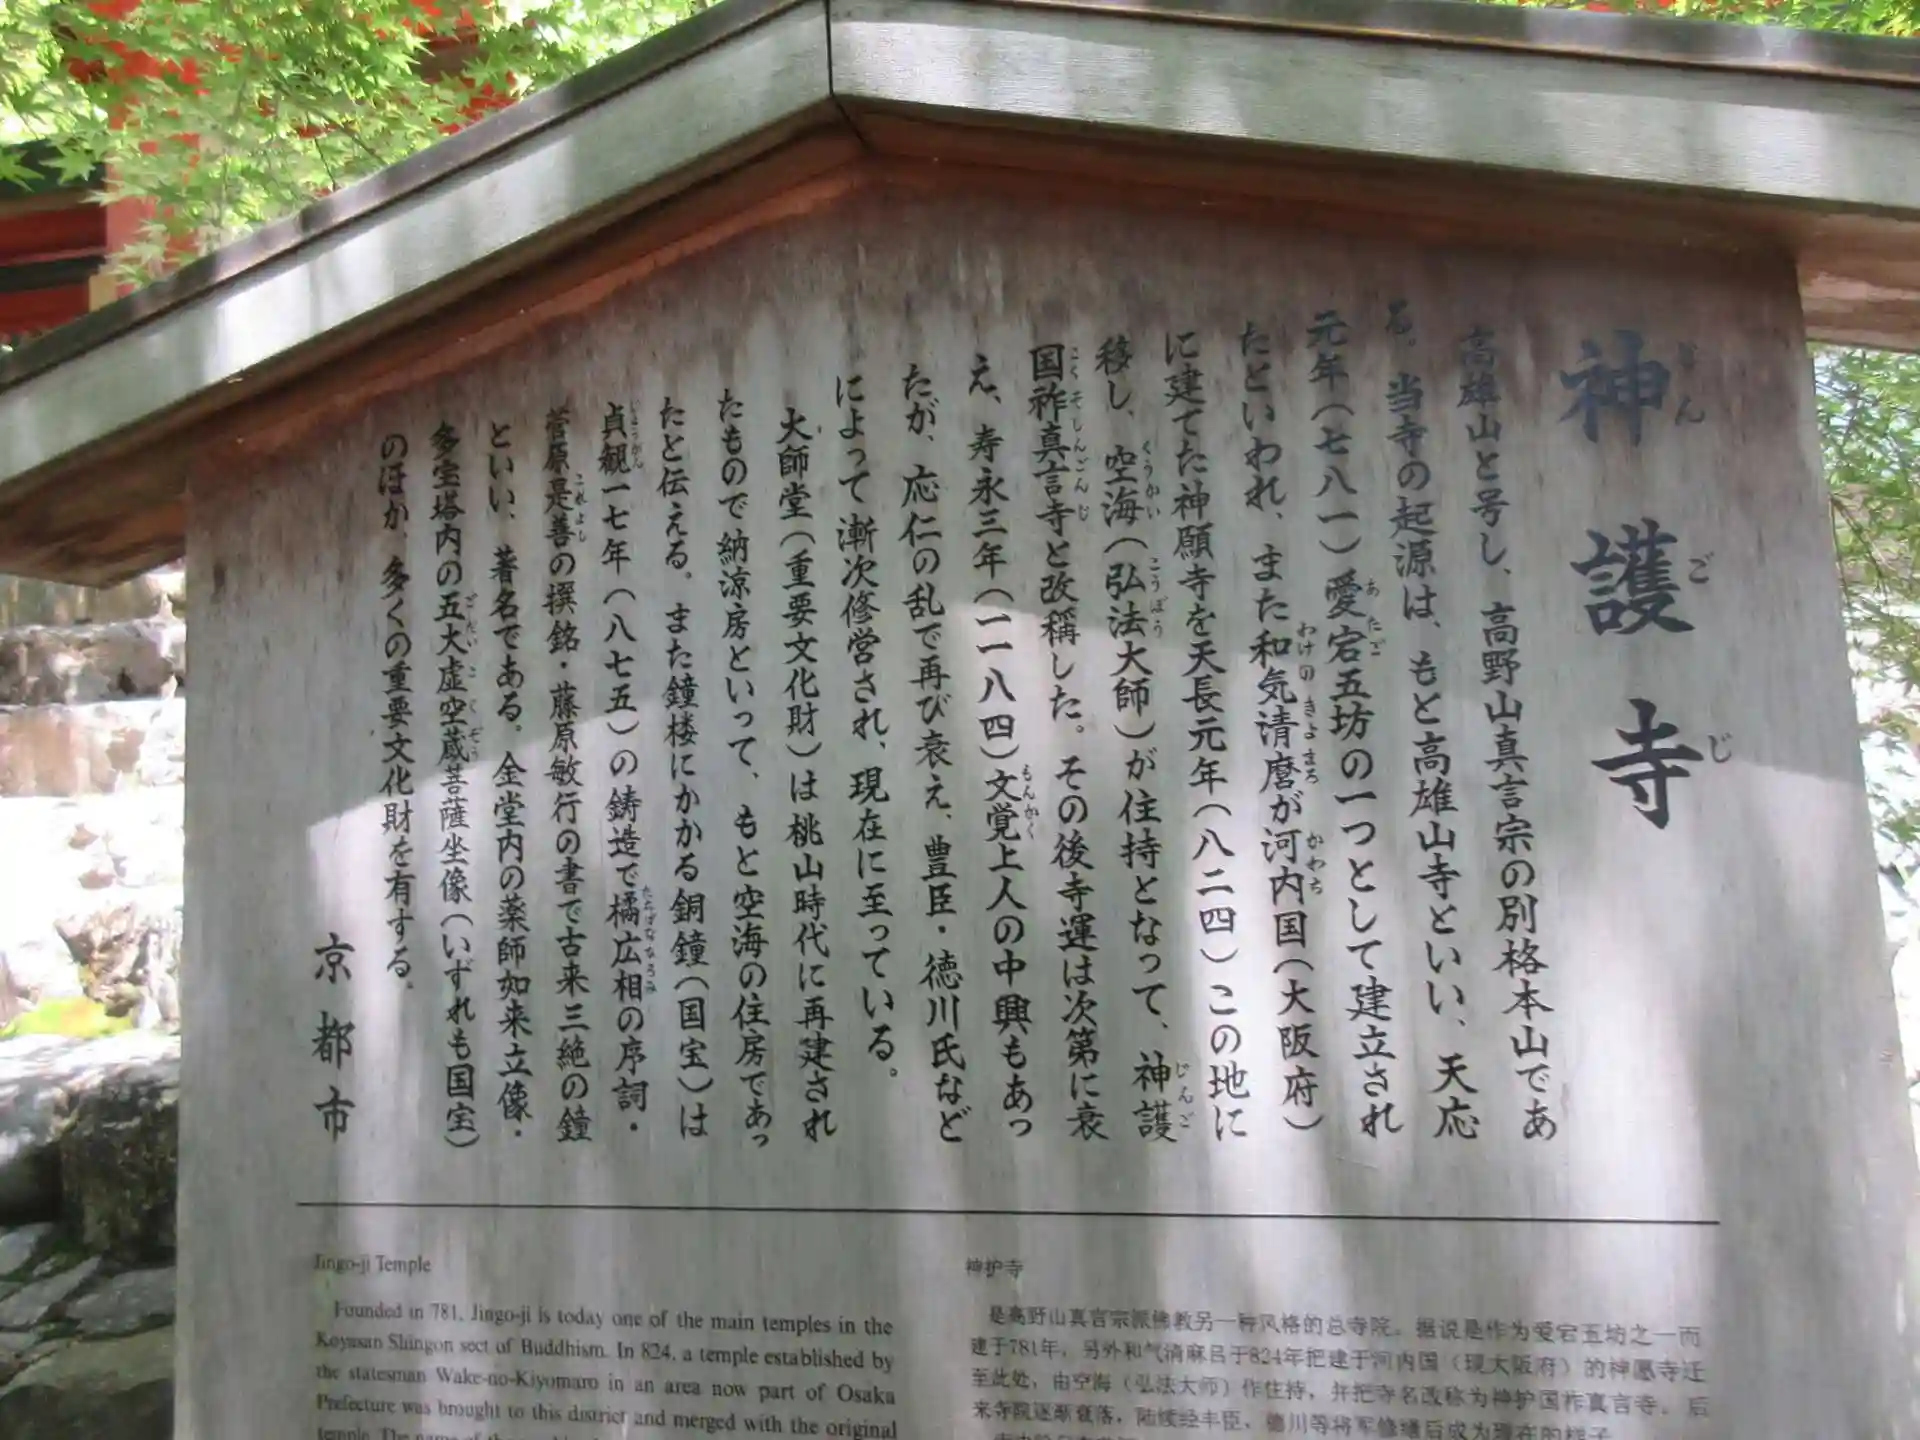 神護寺
高雄山と号し、高野山真言宗の別格本山であ
る。当寺の起源は、もと高雄山寺といい、天応
元年（七八一）愛宕五坊の一つとして建立され
たといわれ、また和気清麿が河内国（大阪府）
に建てた神願寺を天長元年（八二四）この地に
移し、空海（弘法大師）が住持となって、神護
国祚真言寺と改稱した。その後寺運は次第に衰
え、寿永三年（一一八四）文覚上人の中興もあっ
たが、応仁の乱で再び衰え、豊臣・徳川氏など
によって漸次修営され、現在に至っている。
大師堂（重要文化財）は桃山時代に再建され
たもので納涼房といって、もと空海の住房であっ
たと伝える。また鐘楼にかかる銅鐘（国宝）は
貞観一七年（八七五）の鋳造で橘広相の序詞・
菅原是善の撰銘・藤原敏行の書で古来三絶の鐘
といい、著名である。金堂内の薬師如来立像・
多宝塔内の五大虚空蔵菩薩坐像（いずれも国宝）
のほか、多くの重要文化財を有する。
京都市
Jingo-ji Temple
Founded in 781, Jingo-ji is today one of the main temples in the
Koyasan Shingon sect of Buddhism. In 824, a temple established by
the statesman Wake-no-Kiyomaro in an area now part of Osaka
Prefecture was brought to this district and merged with the original
神护寺
是高野山真言宗派佛教另一种风格的总寺院。据说是作为爱宕五坊之一而
建于781年，另外和气清麻吕于824年把建于河内国（现大阪府）的神愿寺迁
至此处，由空海（弘法大师）作住持，并把寺名改称为神护国祚真言寺。后
来寺院逐渐衰落，陆续经丰臣、德川等将军修缮后成为现在的样子